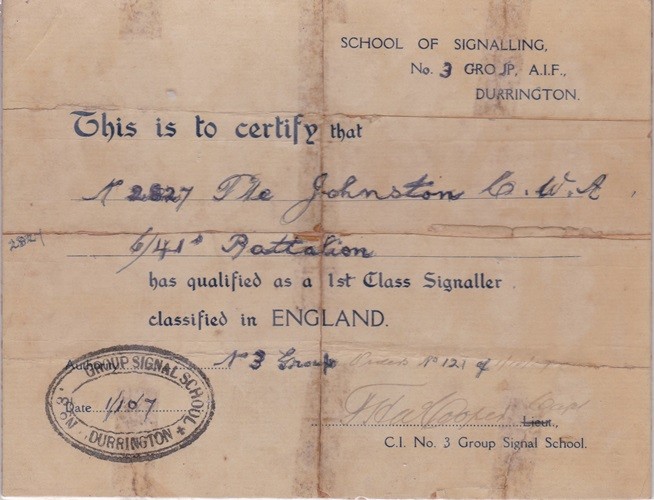 SCHOOL OF SIGNALLING,
No. 3 GROUP, A.I.F.,
DURRINGTON.
This is to certify that
No 2827 Pte Johnston C. W. A.
2827
6/41st Battalion
has qualified as a 1st Class Signaller
classified in ENGLAND.
Authority No 3 Group Order No 121 of
Date 1/10/7
GROUP SIGNAL SCHOOL
No 3
DURRINGTON
Cooper Capt
Lieut.,
C.I. No. 3 Group Signal School.